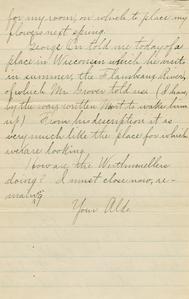 for my room, on which to place my
flowers next spring.
George Orr told me today of a
place in Wisconsin which he visits
in summer, the Flambeau River,
of which Mr Groves told us (I have,
by the way, written Mort to wake him
up) From his description it is
very much like the place for which
we are looking.
How are the Werthmuellers
doing? I must close now, re-
maining
Your Aldo